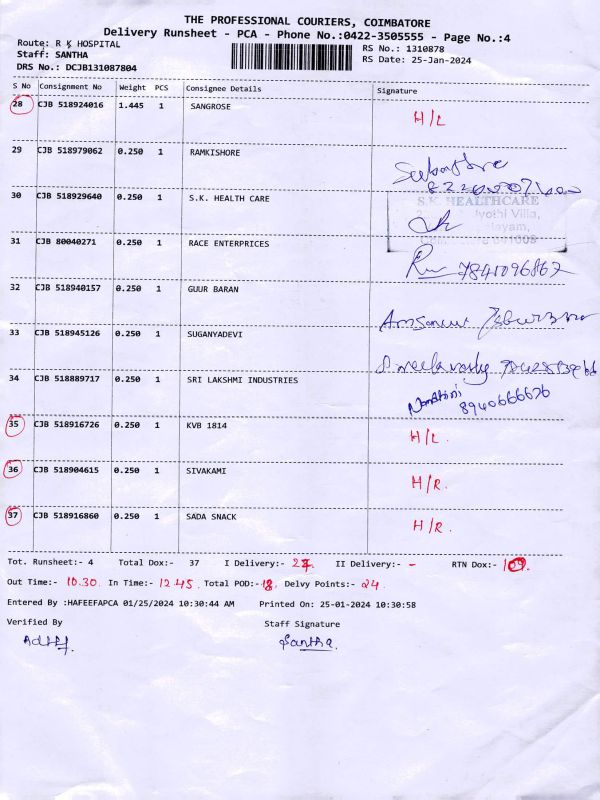 THE PROFESSIONAL COURIERS, COIMBATORE
Delivery Runsheet - PCA - Phone No.:0422-3505555 - Page No.:4
Route: R K HOSPITAL
RS No.: 1310878
Staff: SANTHA
RS Date: 25-Jan-2024
DRS No.: DCJB131087804
S No Consignment No Weight PCS Consignee Details Signature
28 CJB 518924016 1.445 1 SANGROSE H/L
29 CJB 518979062 0.250 1 RAMKISHORE
30 CJB 518929640 0.250 1 S.K. HEALTH CARE
S.K. HEALTHCARE
Jyothi Villa,
641008
31 CJB 80040271 0.250 1 RACE ENTERPRICES
32 CJB 518940157 0.250 1 GUUR BARAN
33 CJB 518945126 0.250 1 SUGANYADEVI
34 CJB 518889717 0.250 1 SRI LAKSHMI INDUSTRIES
8940666676
35 CJB 518916726 0.250 1 KVB 1814 H/L.
36 CJB 518904615 0.250 1 SIVAKAMI H/R.
37 CJB 518916860 0.250 1 SADA SNACK H/R.
Tot. Runsheet:- 4 Total Dox:- 37 I Delivery:- II Delivery:- - RTN Dox:-
Out Time:- 10.30 In Time:- 12.45 Total POD:- Delvy Points:- 24
Entered By :HAFEEFAPCA 01/25/2024 10:30:44 AM Printed On: 25-01-2024 10:30:58
Verified By Staff Signature
Santha.